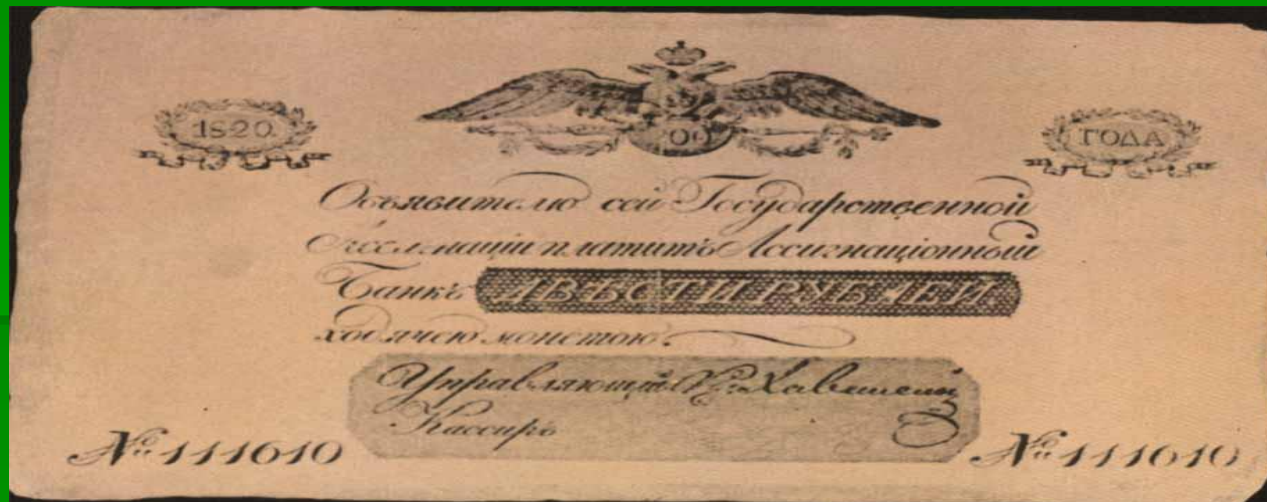 1820 ГОДА
Объявителю сей Государственной
Ассигнаціи платитъ Ассигнаціонный
Банкъ ДВѢСТИ РУБЛЕЙ
ходячею монетою.
Управляющій
Кассиръ
№ 111610 № 111610